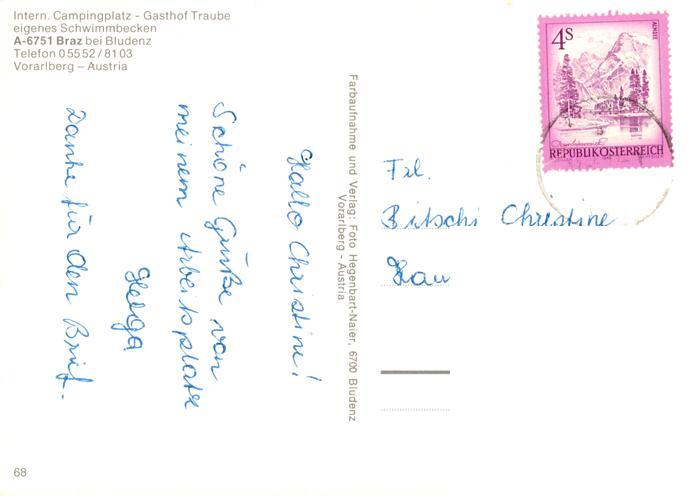 Intern. Campingplatz - Gasthof Traube
eigenes Schwimmbecken
A-6751 Braz bei Bludenz
Telefon 0 55 52 / 81 03
Vorarlberg – Austria
Hallo Christine!
Schöne Grüße von
meinem Arbeitsplatz
Helga
Danke für den Brief.
Farbaufnahme und Verlag: Foto Hegenbart-Naier, 6700 Bludenz
Vorarlberg - Austria
4S
ALMSEE
REPUBLIK ÖSTERREICH
Frl.
Bitschi Christine
68